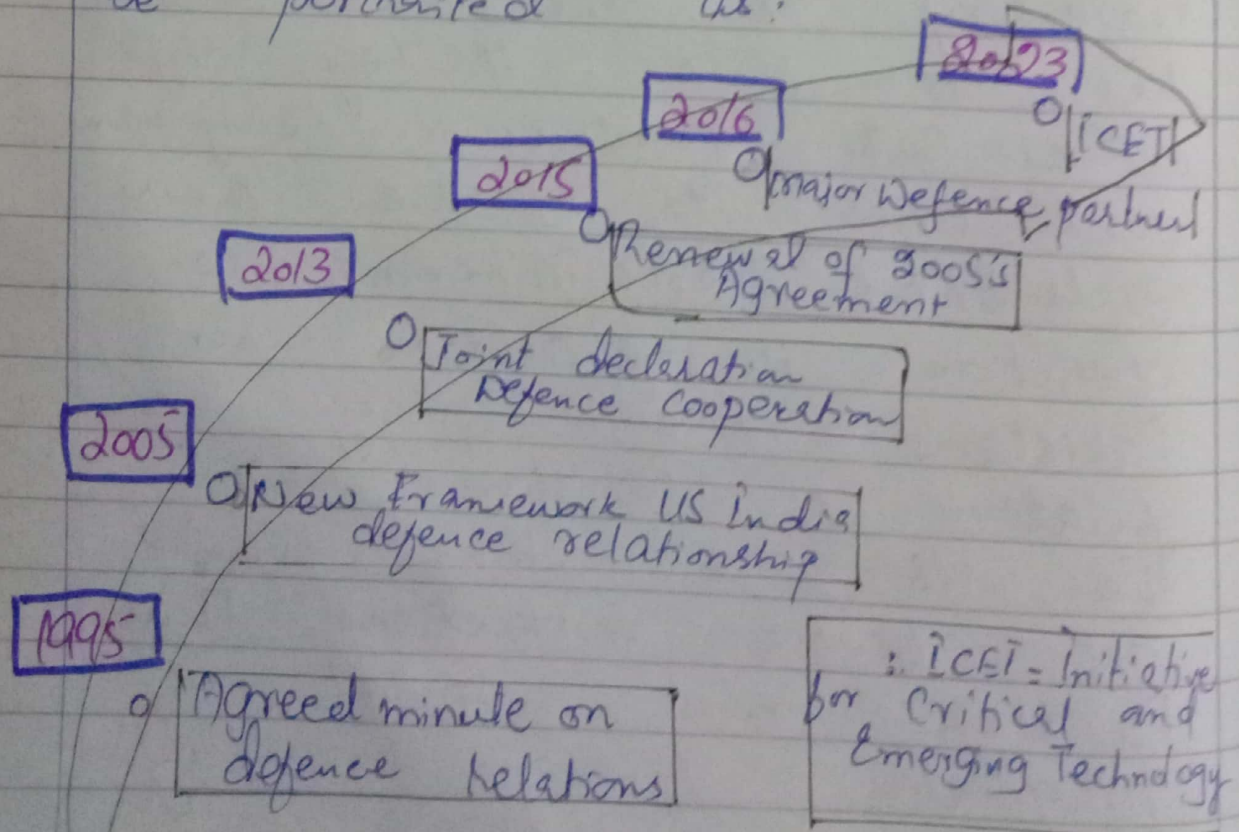 be portraited as:
2023
ICET
2016
major Defence partner
2015
Renewal of 2005's
Agreement
2013
Joint declaration
Defence cooperation
2005
New Framework US India
defence relationship
1995
Agreed minute on
defence relations
: ICET = Initiative
for Critical and
Emerging Technology